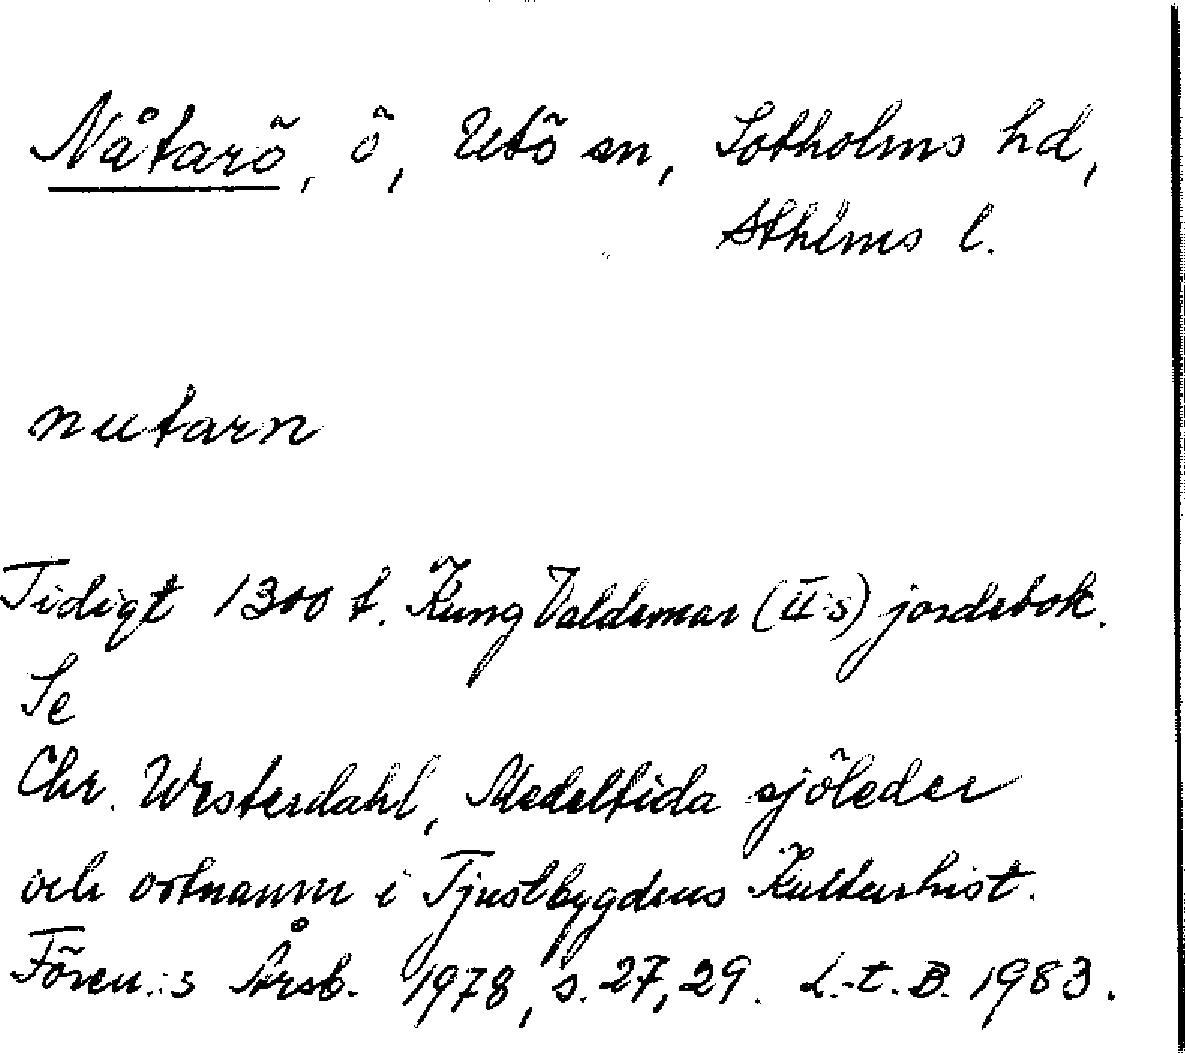 Nåtarö, ö, Utö sn, Sotholms hd,
Sthlms l.
nutarn
Tidigt 1300 t. Kung Valdemar (II:s) jordebok.
Se
Chr. Westerdahl, Medeltida sjöleder
och ortnamn i Tjustbygdens Kulturhist.
Fören.:s Årsb. 1978, s. 27, 29. L.-t. B. 1983.